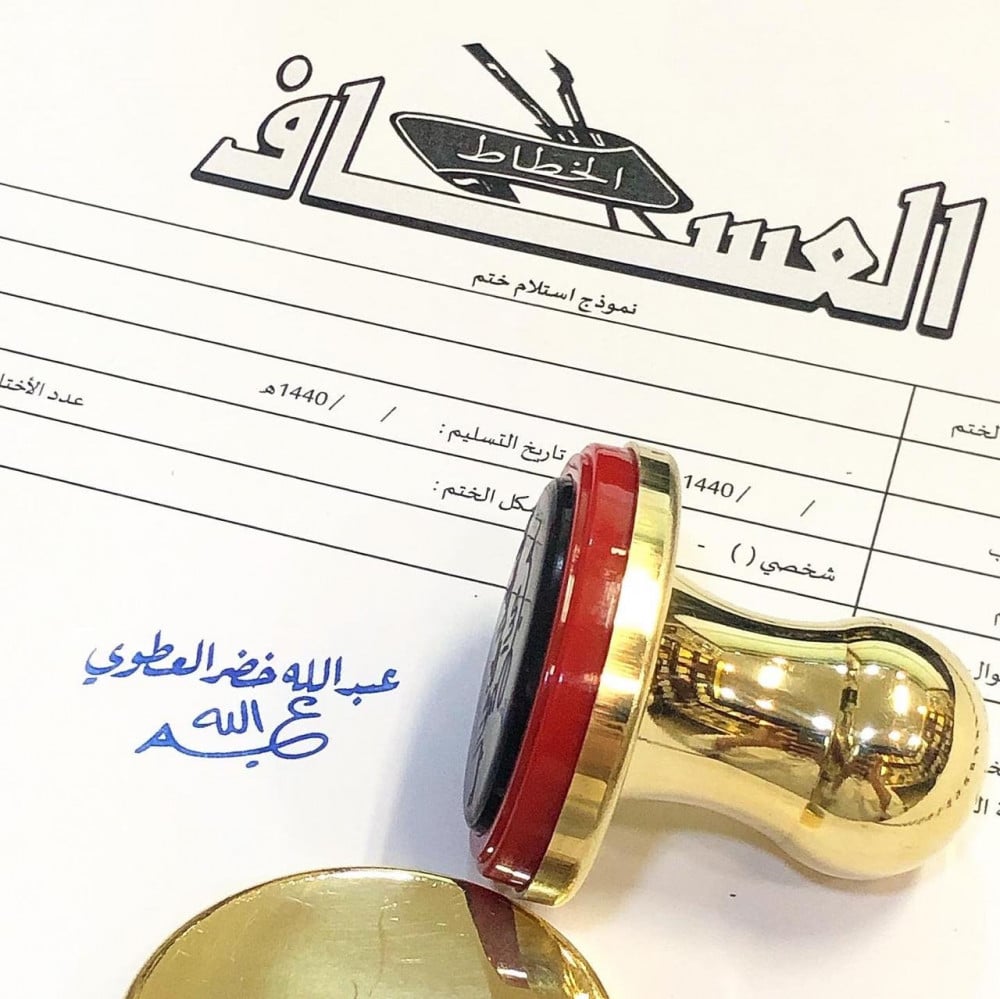 العساف
الخطاط
نموذج استلام ختم
الختم
تاريخ التسليم : / / 1440هـ
/ / 1440
عدد الأختا
شكل الختم :
شخصي ( ) -
عبدالله خضر العطوي
عبدالله